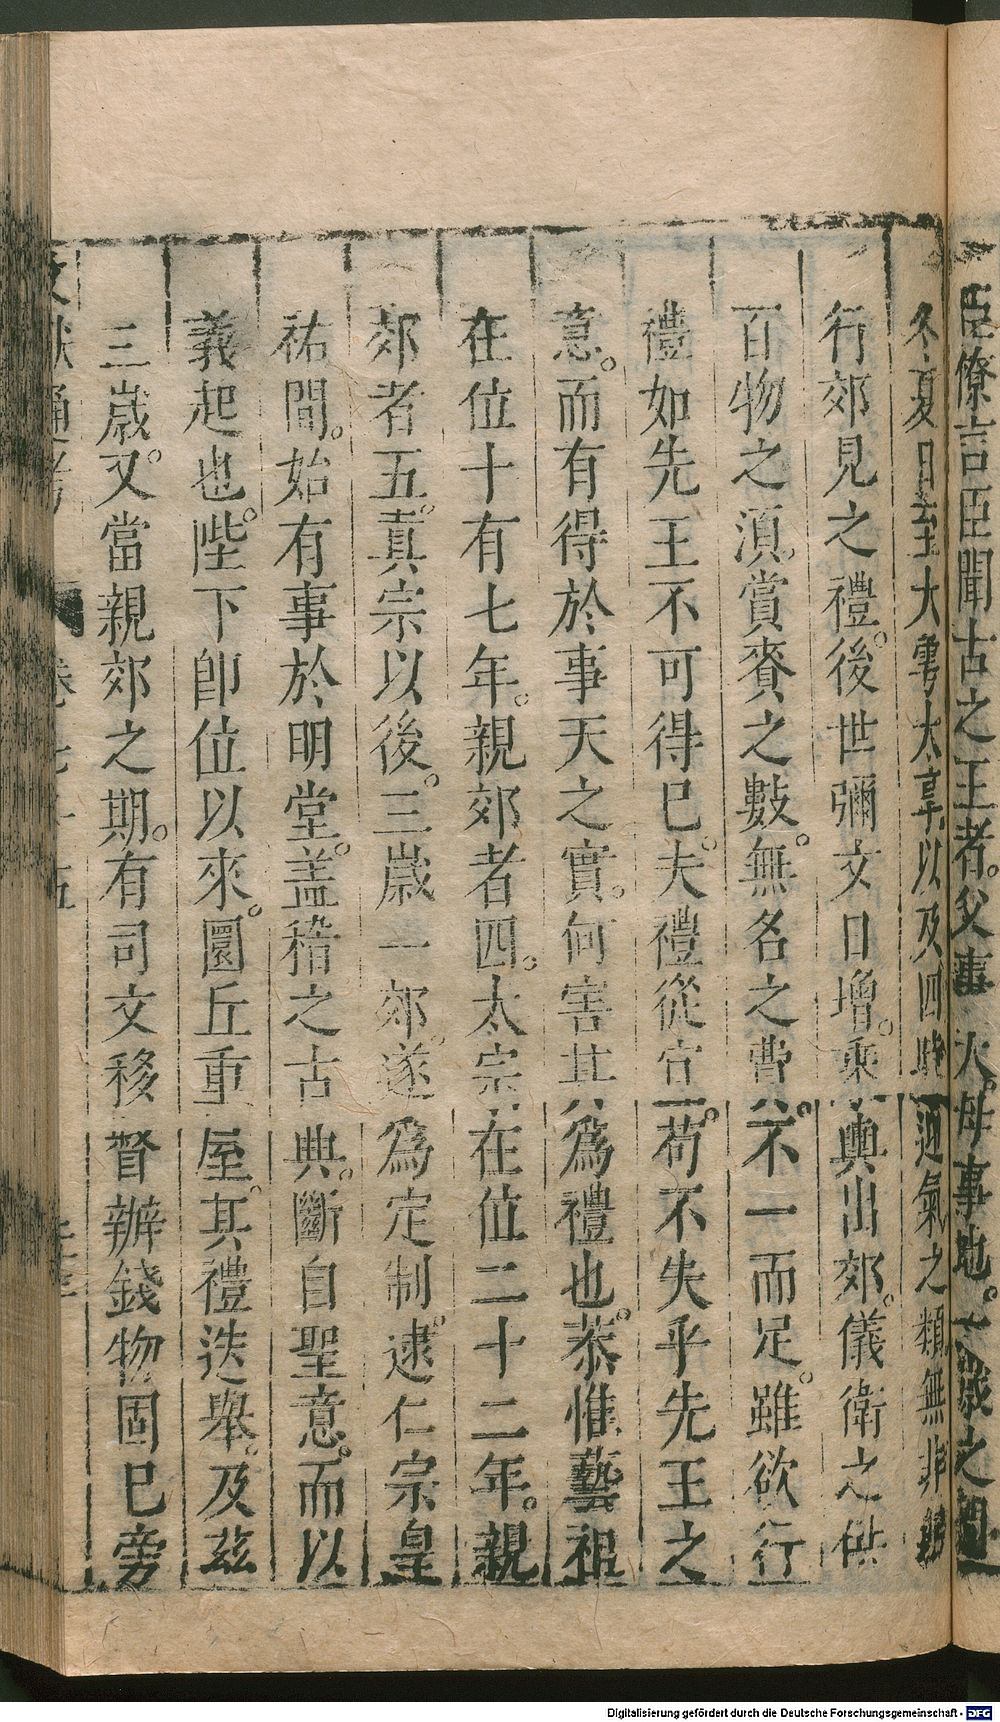 臣僚言臣聞古之王者。父事天。母事地。一歲之間
冬夏日至大雩大享以及四時迎氣之類無非親
行郊見之禮。後世彌文日增。乘輿出郊。儀衛之供
百物之湏。賞賚之數。無名之費。不一而足。雖欲行
禮如先王不可得巳。夫禮從宜。苟不失乎先王之
意。而有得於事天之實。何害其爲禮也。恭惟藝祖
在位十有七年。親郊者四。太宗在位二十二年。親
郊者五。真宗以後。三歲一郊。遂爲定制。逮仁宗皇
祐間。始有事於明堂。盖稽之古典。斷自聖意。而以
義起也。陛下卽位以來。圜丘重屋。其禮迭舉。及茲
三歲。又當親郊之期。有司文移督辦錢物固巳旁
文獻通考 卷七十五
Digitalisierung gefördert durch die Deutsche Forschungsgemeinschaft - DFG